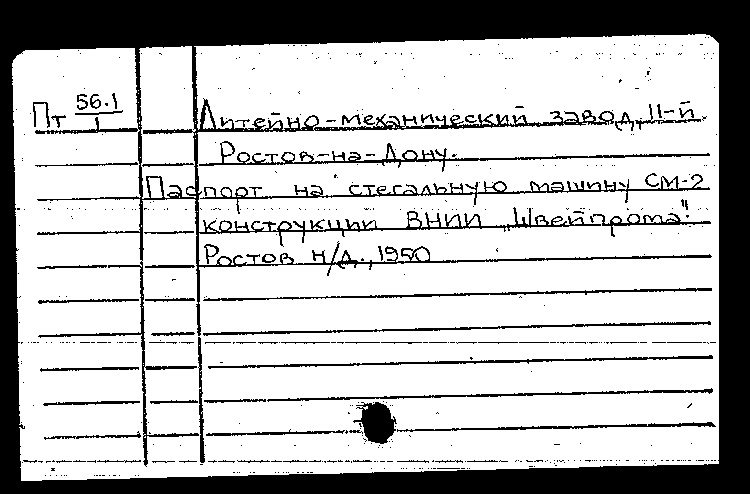 Пт 56.1/1 Литейно-механический завод, II-й
Ростов-на-Дону.
Паспорт на стегальную машину СМ-2
конструкции ВНИИ „Швейпрома".
Ростов н/Д., 1950